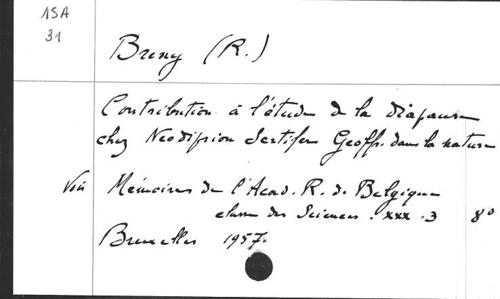 15A
31
Breny (R.)
Contribution à l'étude de la diapause
chez Neodiprion Sertifer Geoffr. dans la nature
Voir Mémoires de l'Acad. R. de Belgique
classe des Sciences. xxx.3 8°
Bruxelles 1957.